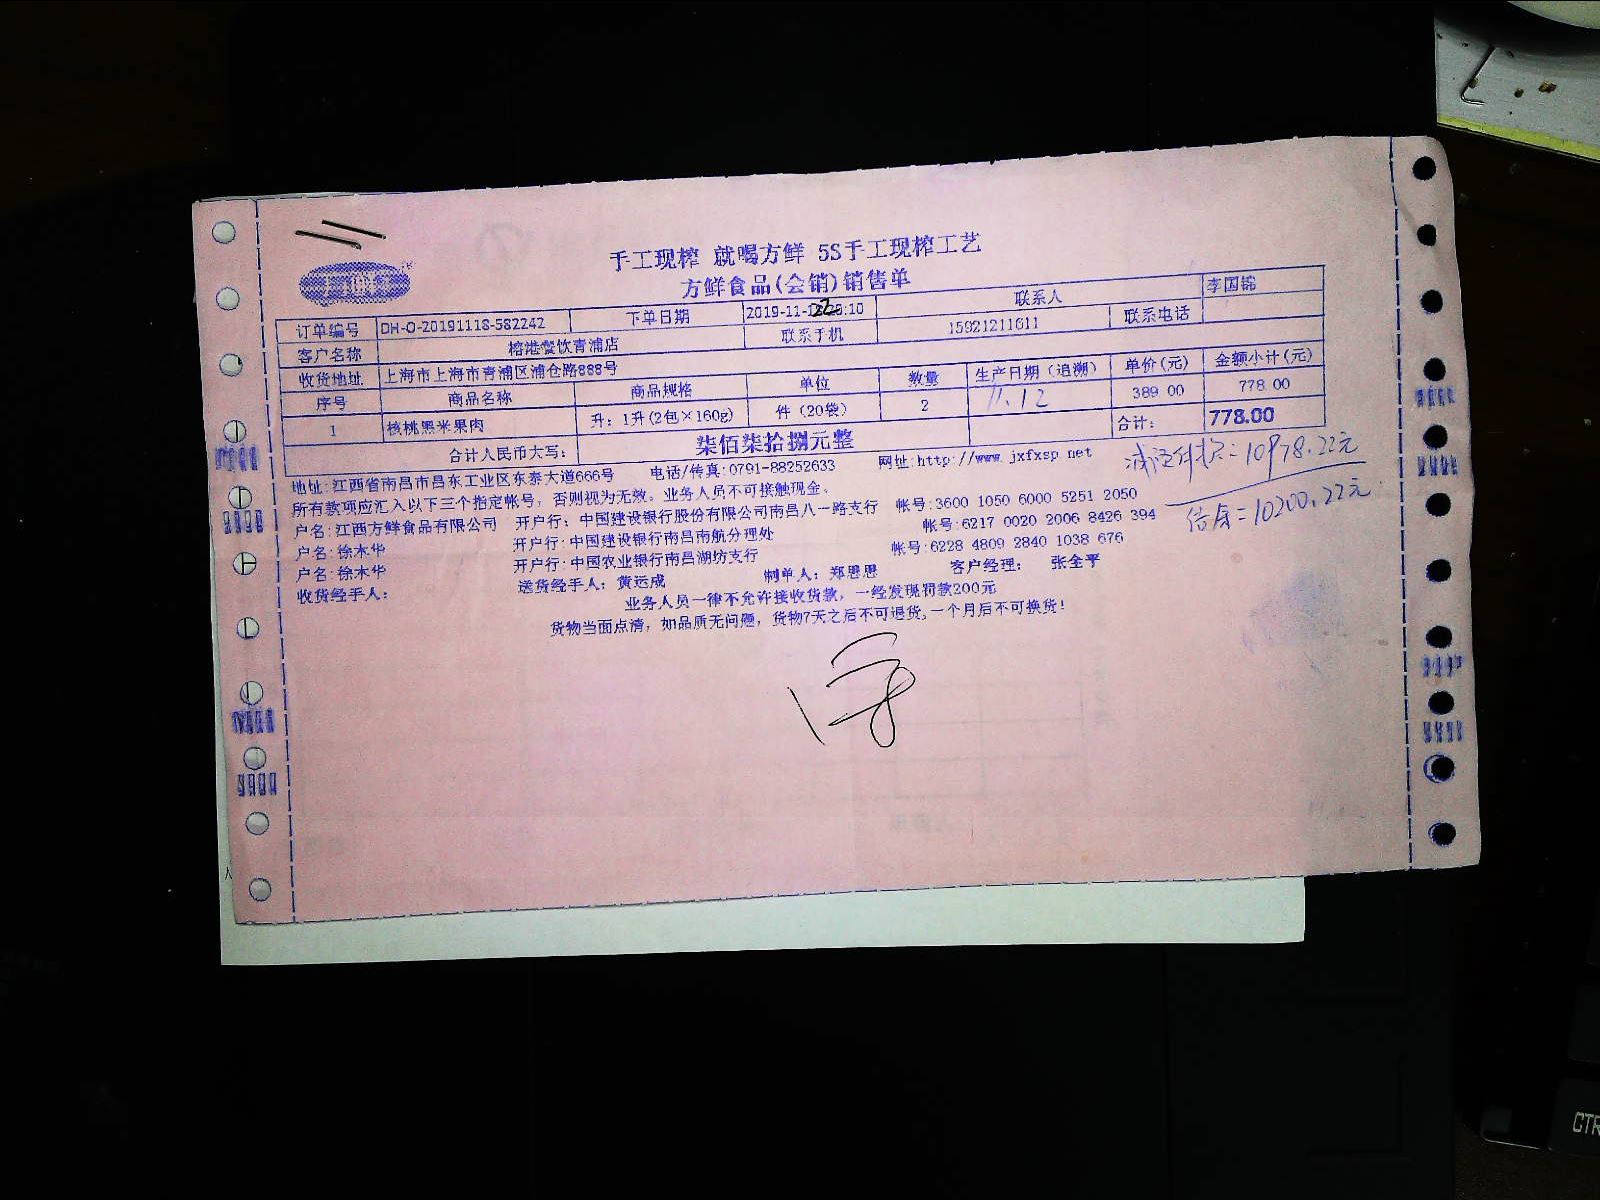 手工现榨 就喝方鲜 5S手工现榨工艺
方鲜食品(会销)销售单
订单编号 DH-O-20191118-582242 下单日期 2019-11- :10 联系人 李国锦
客户名称 榕港餐饮青浦店 联系手机 15921211611 联系电话
收货地址 上海市上海市青浦区浦仓路888号
序号 商品名称 商品规格 单位 数量 生产日期(追溯) 单价(元) 金额小计(元)
1 核桃黑米果肉 升: 1升(2包×160g) 件 (20袋) 2 11.12 389.00 778.00
合计人民币大写: 柒佰柒拾捌元整 合计: 778.00
地址:江西省南昌市昌东工业区东泰大道666号 电话/传真:0791-88252633 网址:http://www.jxfxsp.net
=10978.22元
所有款项应汇入以下三个指定帐号,否则视为无效。业务人员不可接触现金。
=10200.22元
户名:江西方鲜食品有限公司 开户行: 中国建设银行股份有限公司南昌八一路支行 帐号:3600 1050 6000 5251 2050
户名:徐木华 开户行:中国建设银行南昌南航分理处 帐号:6217 0020 2006 8426 394
户名:徐木华 开户行:中国农业银行南昌湖坊支行 帐号:6228 4809 2840 1038 676
收货经手人: 送货经手人: 黄远成 制单人: 郑恩恩 客户经理: 张全平
业务人员一律不允许接收货款,一经发现罚款200元
货物当面点清,如品质无问题,货物7天之后不可退货,一个月后不可换货!
CTR